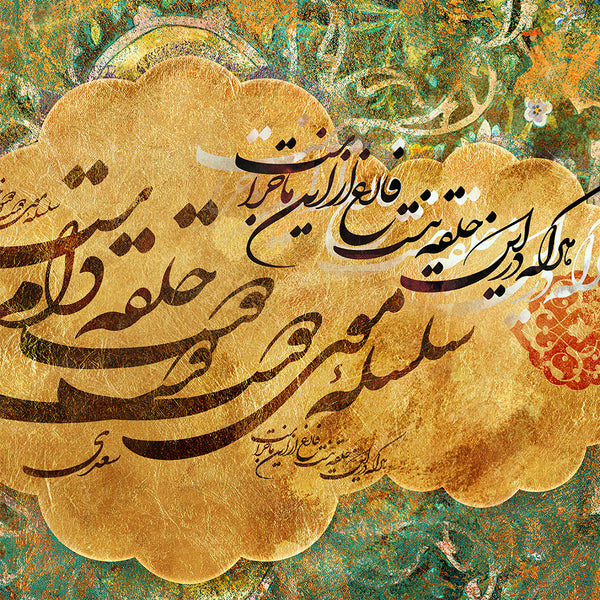 هر که در این حلقه نیست فارغ از این ماجراست
سلسله موی دوست حلقه دام بلاست
هر که در این حلقه نیست فارغ از این ماجراست
سعدی